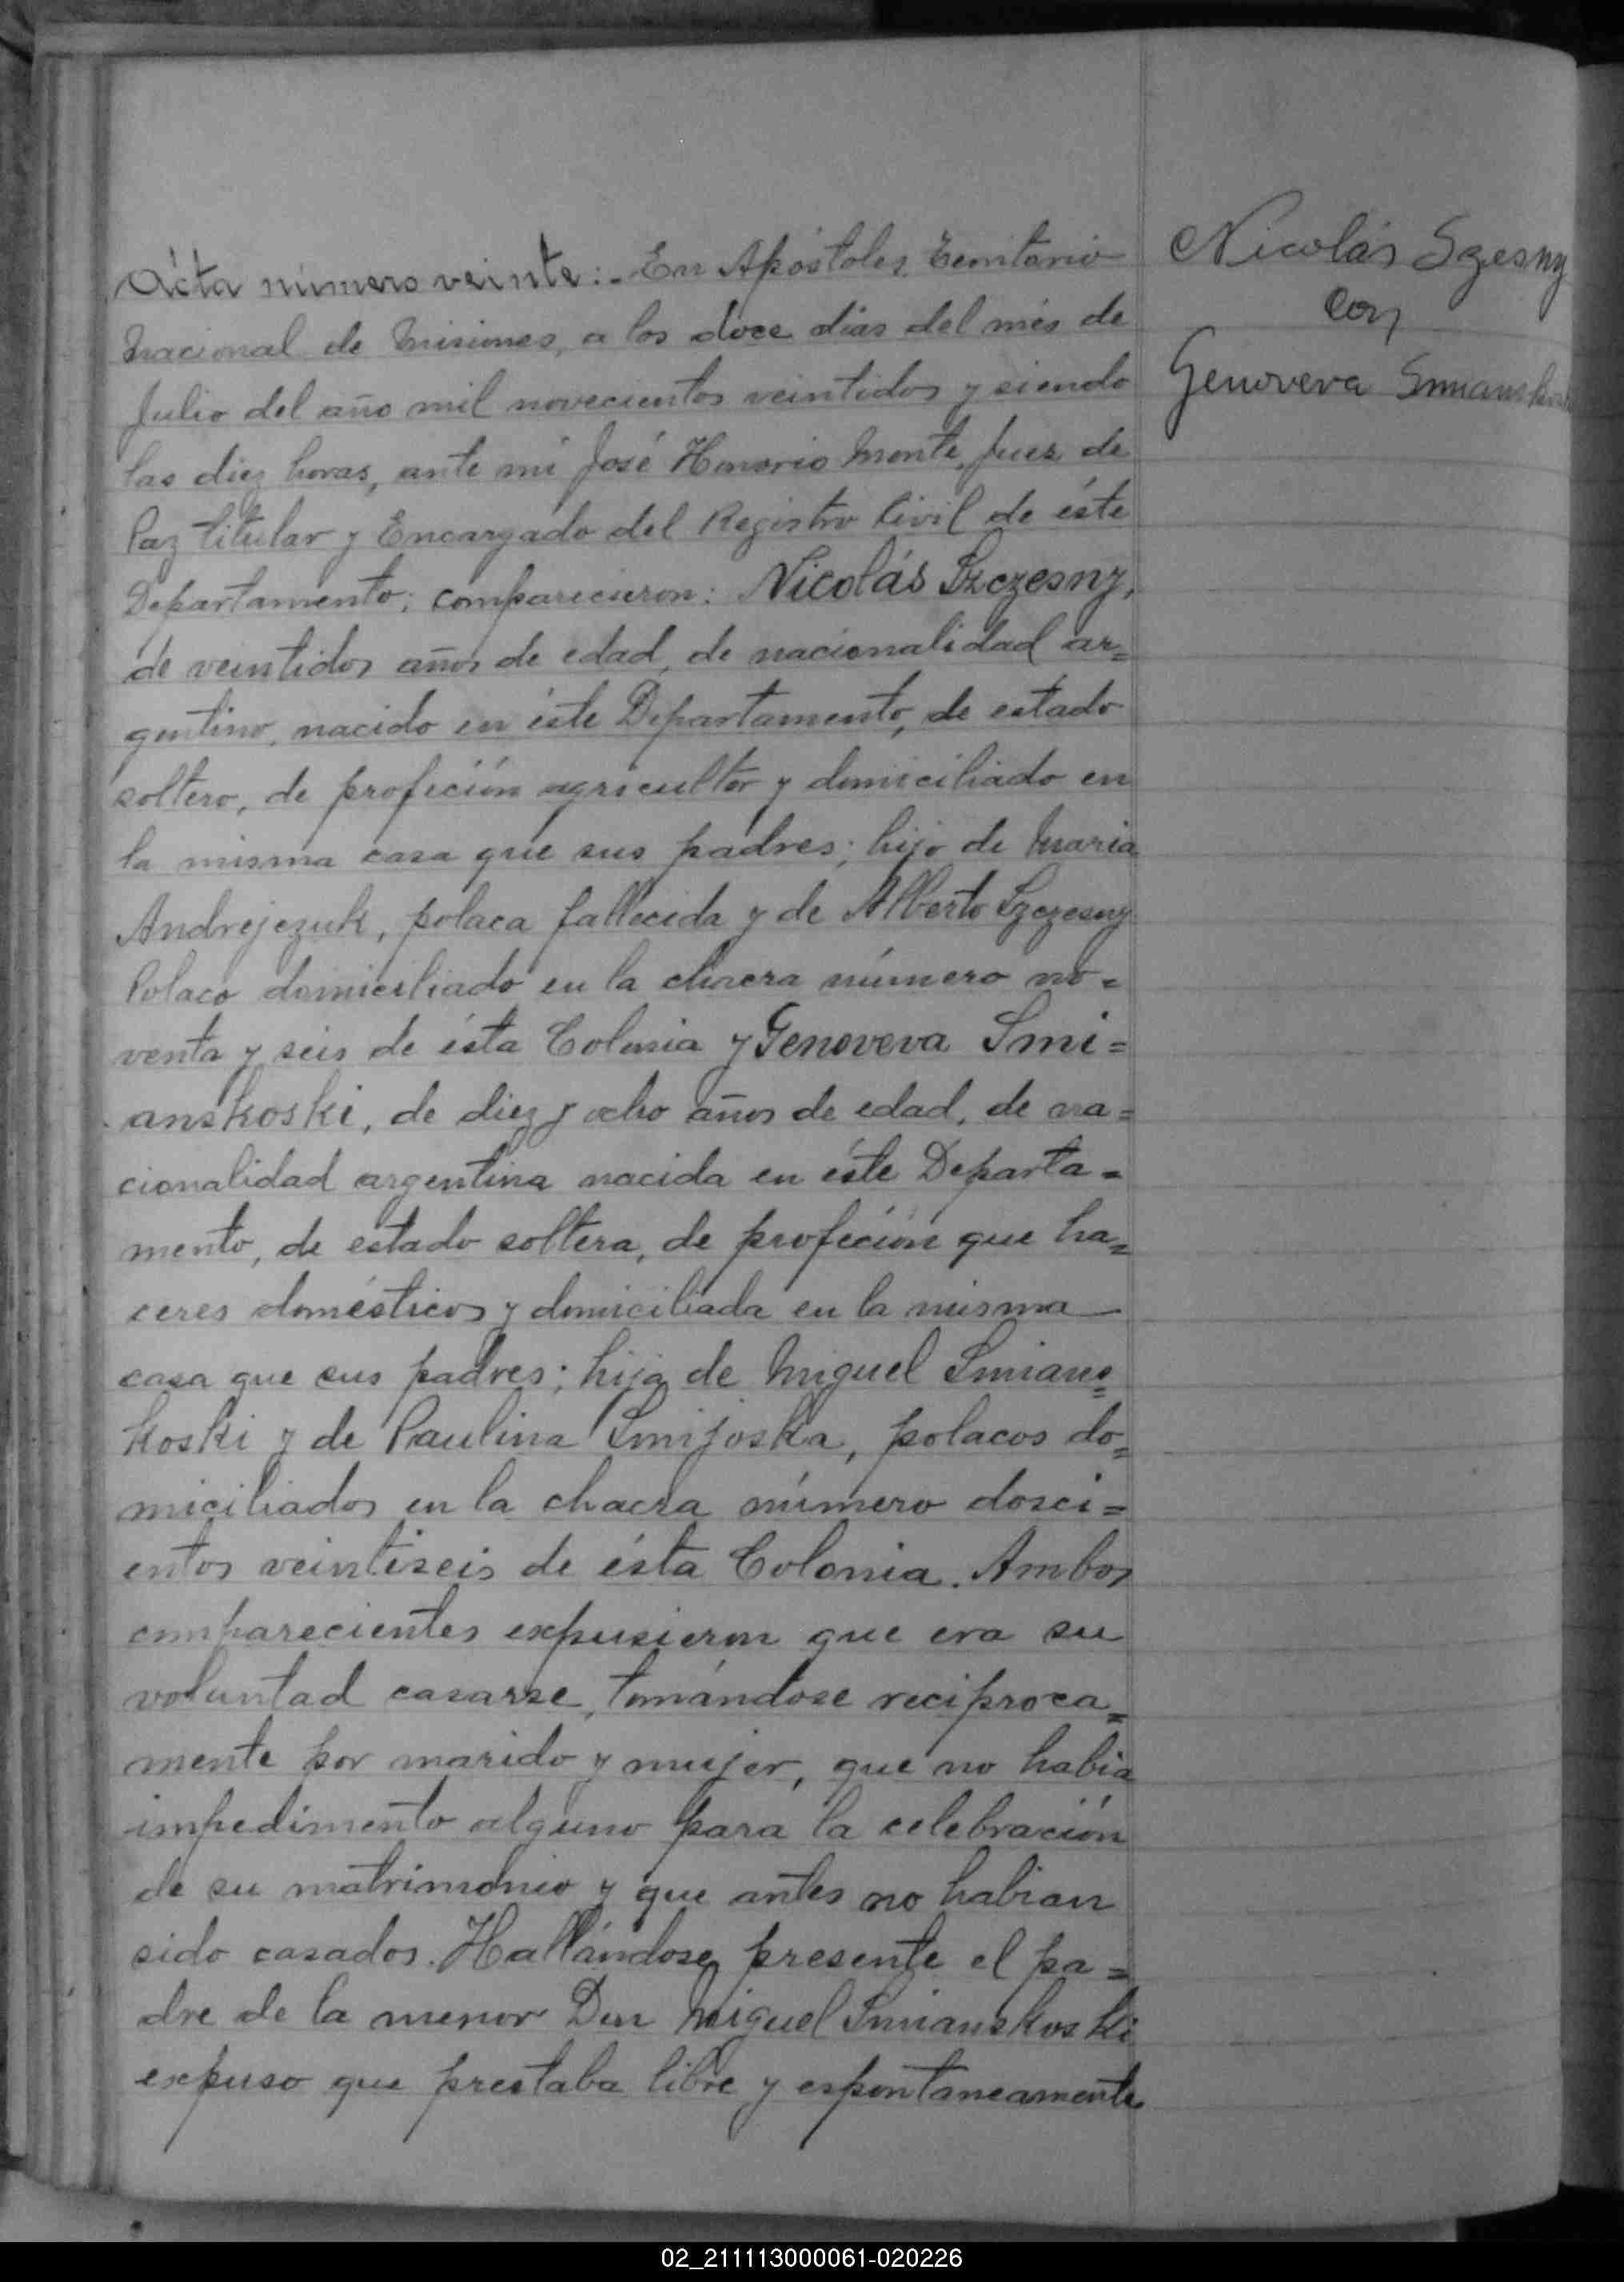 Acta número veinte:- En Apóstoles, Territorio
Nacional de Misiones, a los doce dias del més de
Julio del año mil novecientos veintidos y siendo
las diez horas, ante mi José Honorio Monte, Juez de
Paz titular y Encargado del Registro Civil de éste
Departamento; comparecieron: Nicolás Szczesny,
de veintidos años de edad, de nacionalidad ar=
gentino, nacido en éste Departamento, de estado
soltero, de profeción agricultor y domiciliado en
la misma casa que sus padres; hijo de Maria
Andrejczuk, polaca fallecida y de Alberto Szczesny
Polaco domiciliado en la chacra número no=
venta y seis de ésta Colonia y Genoveva Smi=
anskoski, de diez y ocho años de edad, de na=
cionalidad argentina nacida en éste Departa=
mento, de estado soltera, de profeción que ha=
ceres domésticos y domiciliada en la misma
casa que sus padres; hija de Miguel Smians=
koski y de Paulina Smijoska, polacos do=
miciliados en la chacra número dosci=
entos veintiseis de ésta Colonia. Ambos
comparecientes expusieron que era su
voluntad casarse, tomándose reciproca=
mente por marido y mujer, que no habia
impedimento alguno para la celebración
de su matrimonio y que antes no habian
sido casados. Hallándose presente el pa=
dre de la menor Don Miguel Smianskoski
expuso que prestaba libre y espontaneamente
Nicolás Szesny
con
Genoveva Smianskoski
02_211113000061-020226